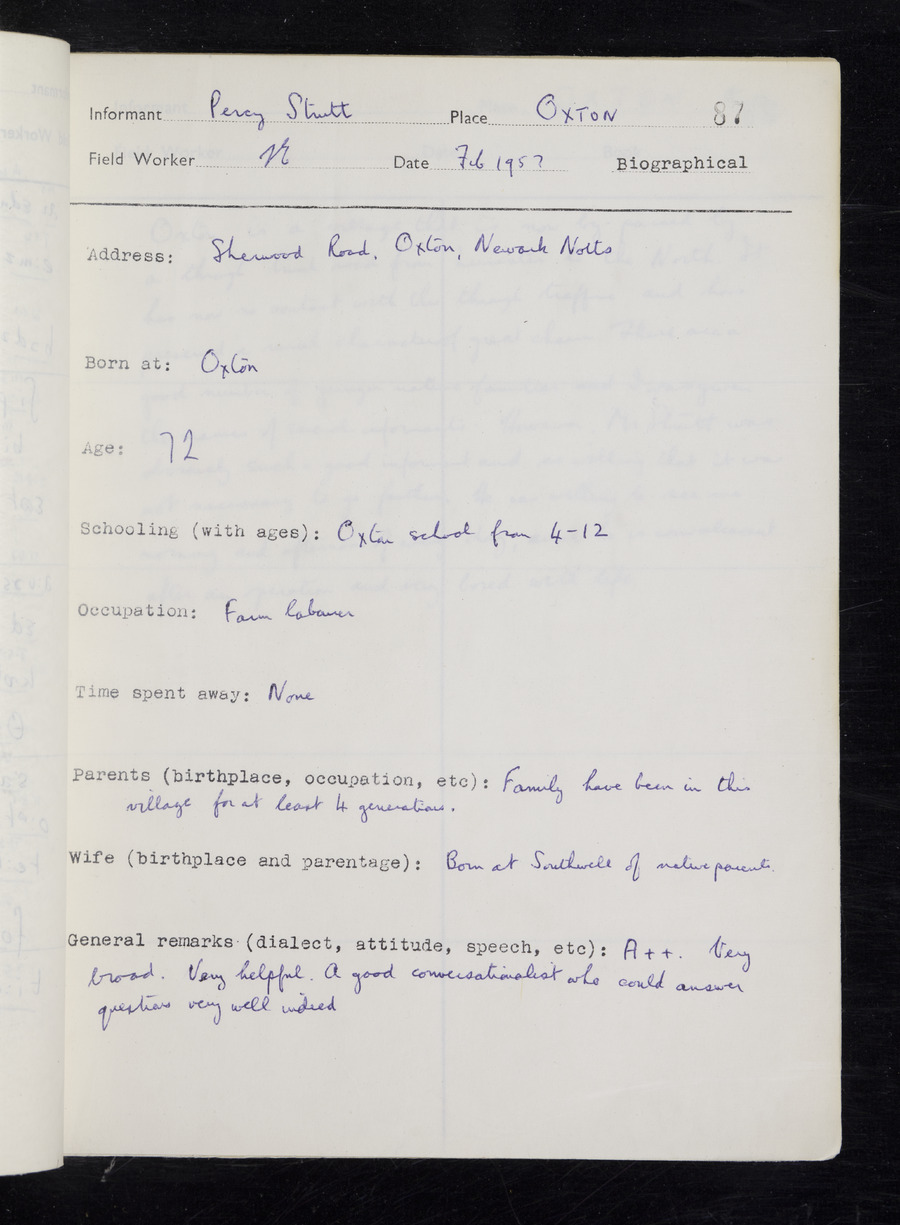 Informant Percy Strutt Place OXTON 87
Field Worker Date Feb 195? Biographical
Address: Sherwood Road, Oxton, Newark Notts
Born at: Oxton
Age: 72
Schooling (with ages): Oxton school from 4-12
Occupation: Farm labourer
Time spent away: None
Parents (birthplace, occupation, etc): Family have been in this
village for at least 4 generations.
Wife (birthplace and parentage): Born at Southwell of native parents.
General remarks (dialect, attitude, speech, etc): A++. Very
broad. Very helpful. A good conversationalist who could answer
questions very well indeed